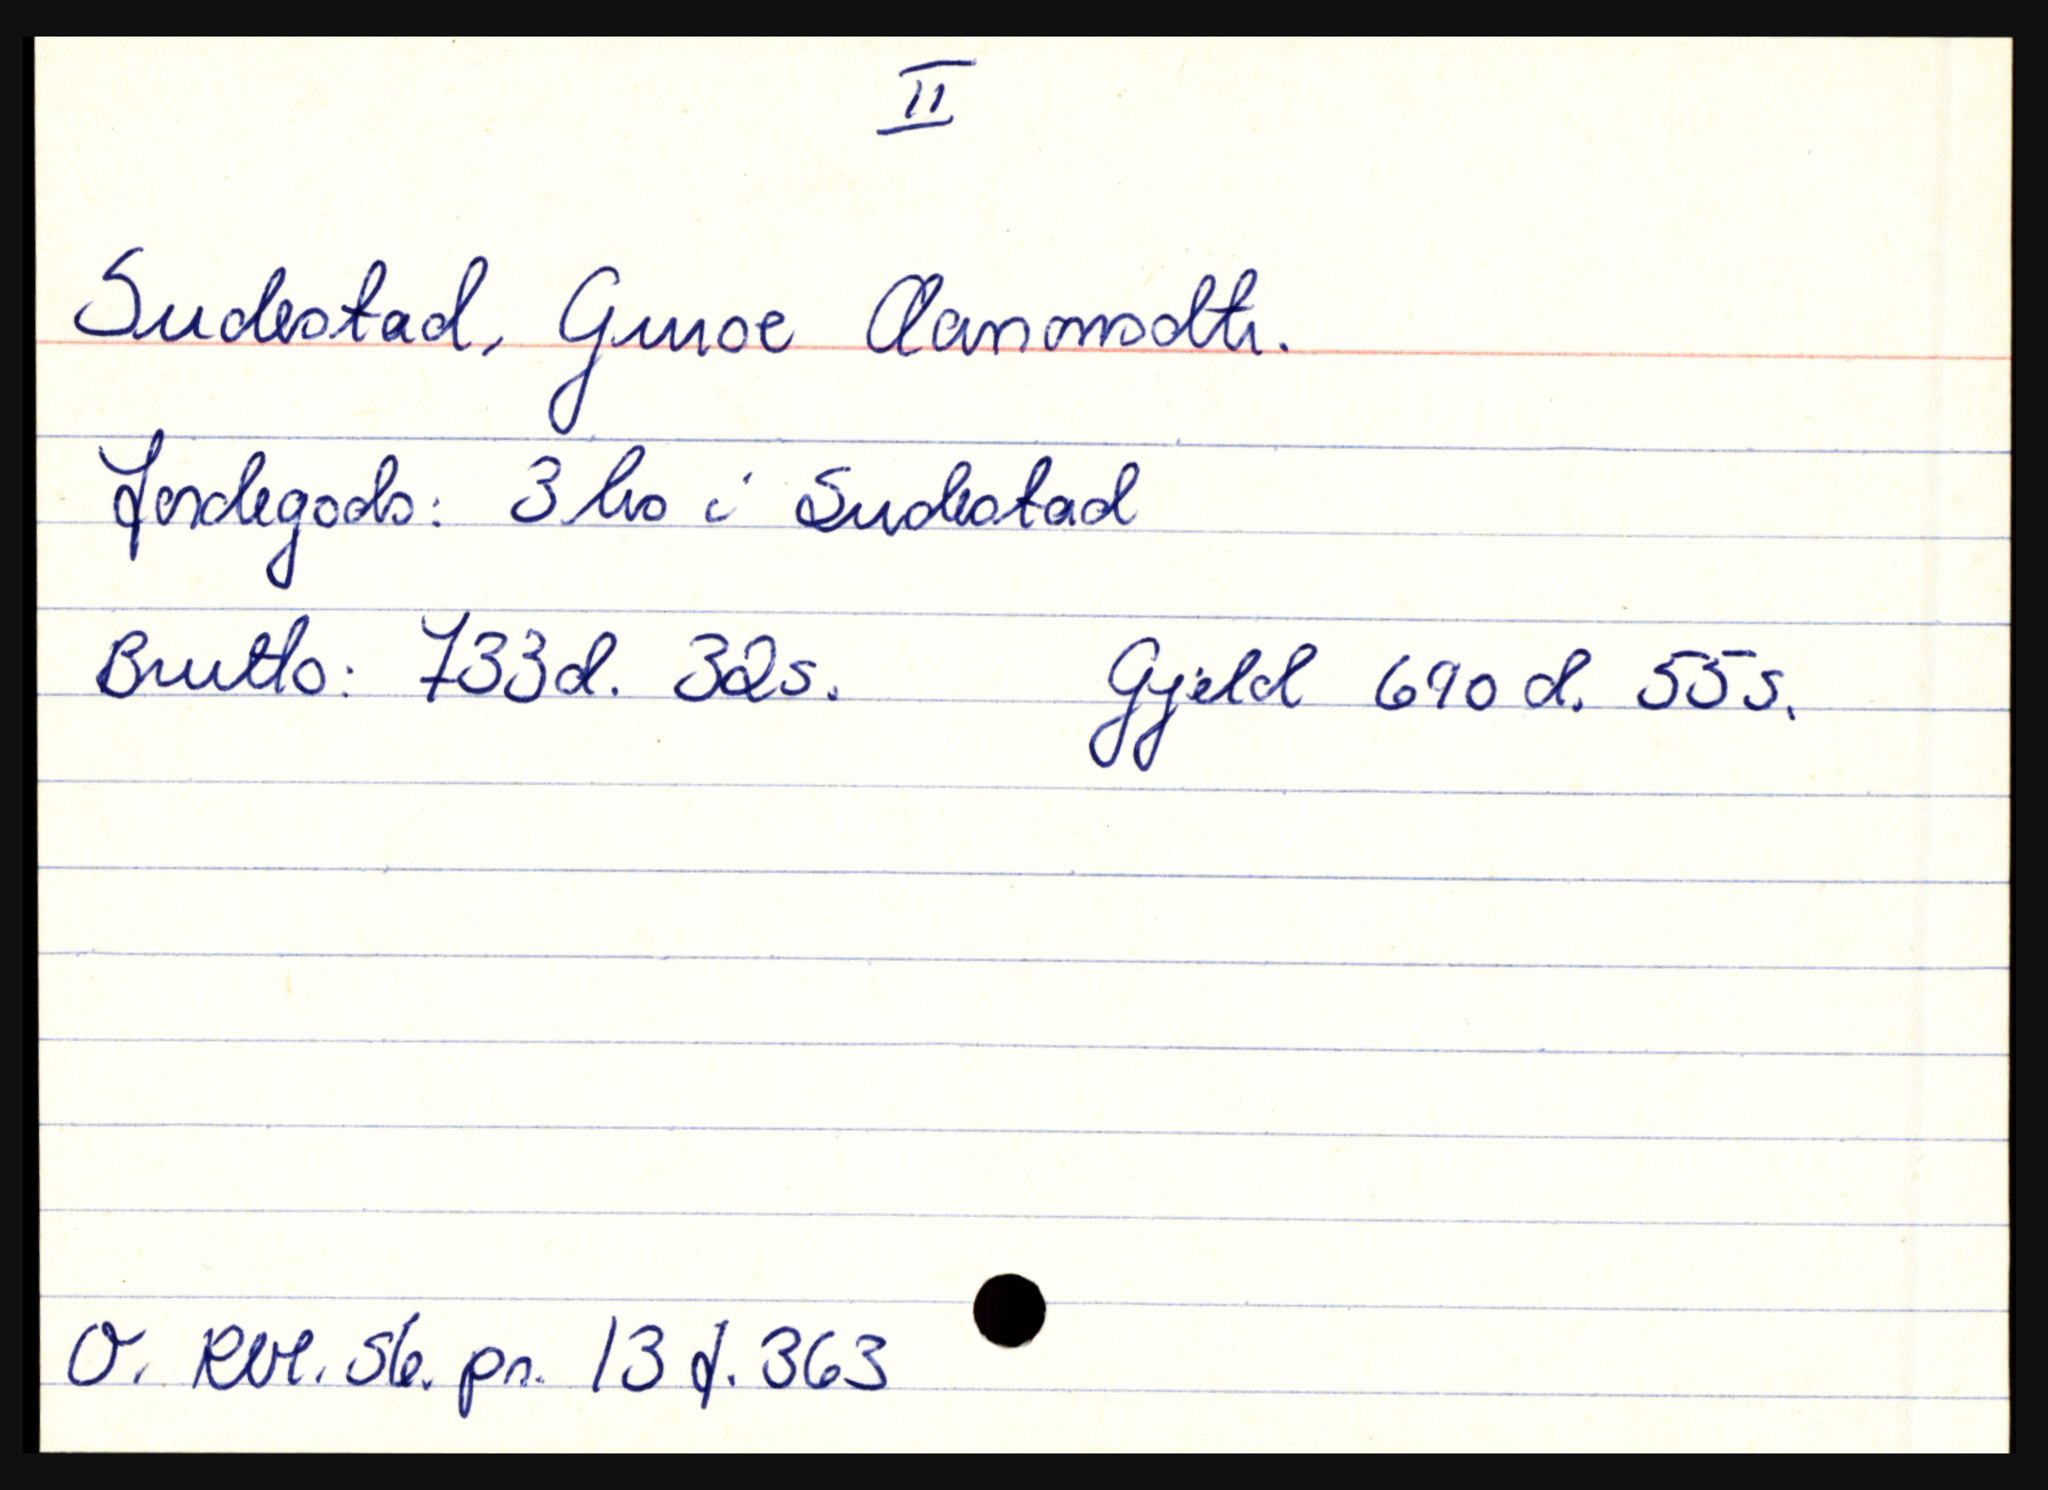 II
Sudestad, Guroe Aanonsdtr.
Jordegods: 3 hs i Sudestad
Brutto: 733 d. 32 s. Gjeld 690 d. 55 s.
Ø. Rbl. sk. pr. 13 f. 363